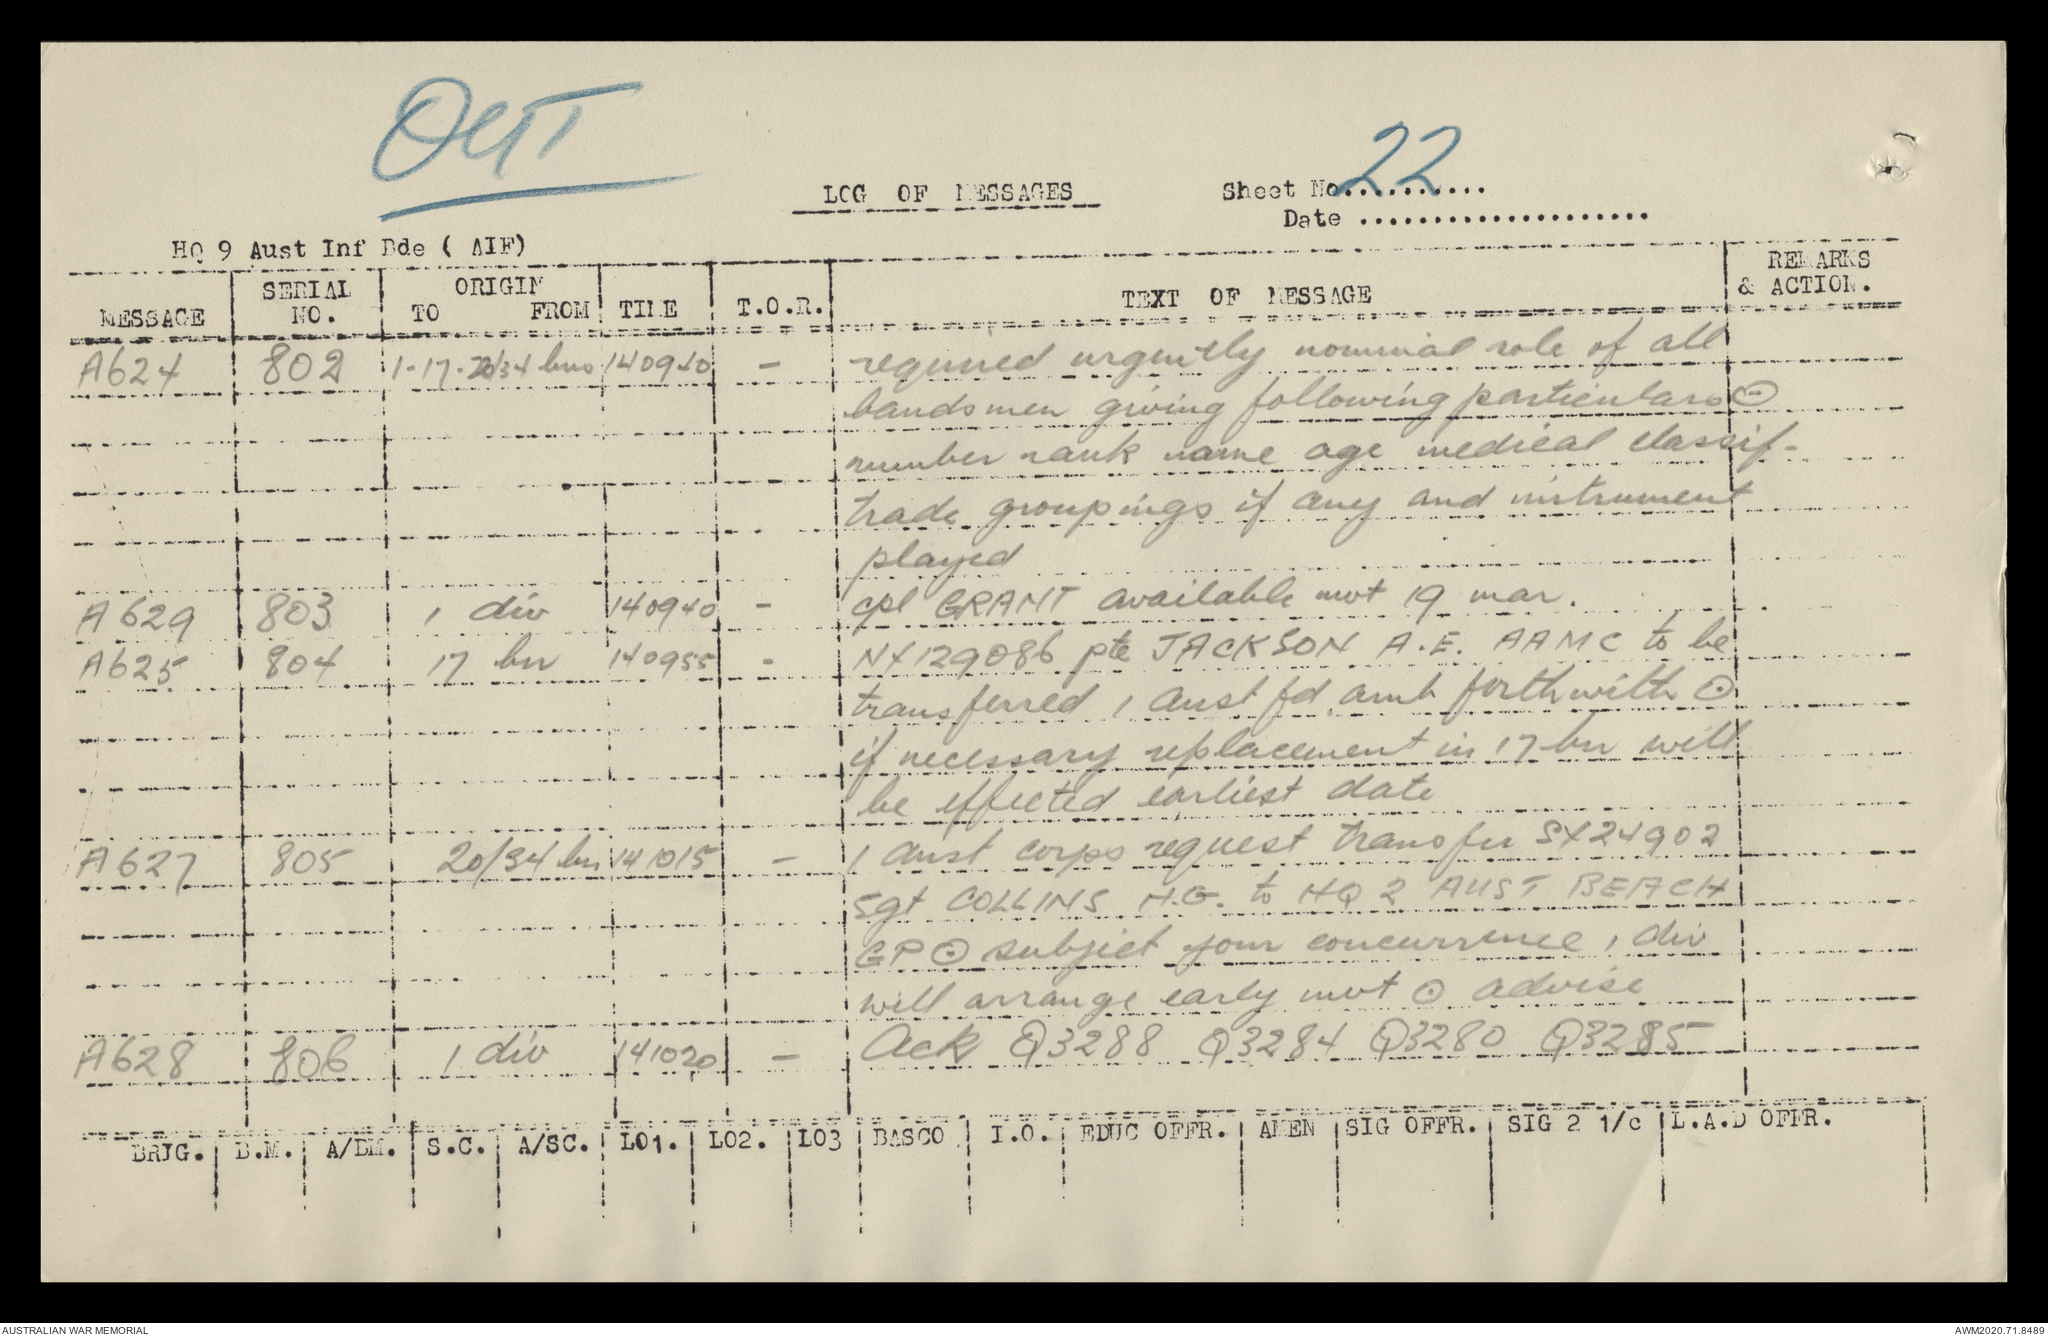 OUT
LOG OF MESSAGES
Sheet No. 22..........
Date ....................
HQ 9 Aust Inf Bde ( AIF)
MESSAGE SERIAL NO. ORIGIN TO FROM TIME T.O.R. TEXT OF MESSAGE REMARKS & ACTION.
A624 802 1-17-20/34 bns 140940 - required urgently nominal role of all
bandsmen giving following particulars ⊙
number rank name age medical classif-
trade groupings if any and instrument
played
A629 803 1 div 140940 - cpl GRANT available mvt 19 mar.
A625 804 17 bn 140955 - NX129086 pte JACKSON A.E. AAMC to be
transferred 1 Aust fd amb forthwith ⊙
if necessary replacement in 17 bn will
be effected earliest date
A627 805 20/34 bn 141015 - 1 Aust corps request transfer SX24902
Sgt COLLINS H.G. to HQ 2 AUST BEACH
GP ⊙ subject your concurrence 1 div
will arrange early mvt ⊙ advise
A628 806 1 div 141020 - Ack Q3288 Q3284 Q3280 Q3285
BRIG. B.M. A/BM. S.C. A/SC. LO1. LO2. LO3 BASCO I.O. EDUC OFFR. AMEN SIG OFFR. SIG 2 1/c L.A.D OFFR.
AUSTRALIAN WAR MEMORIAL
AWM2020.71.8489